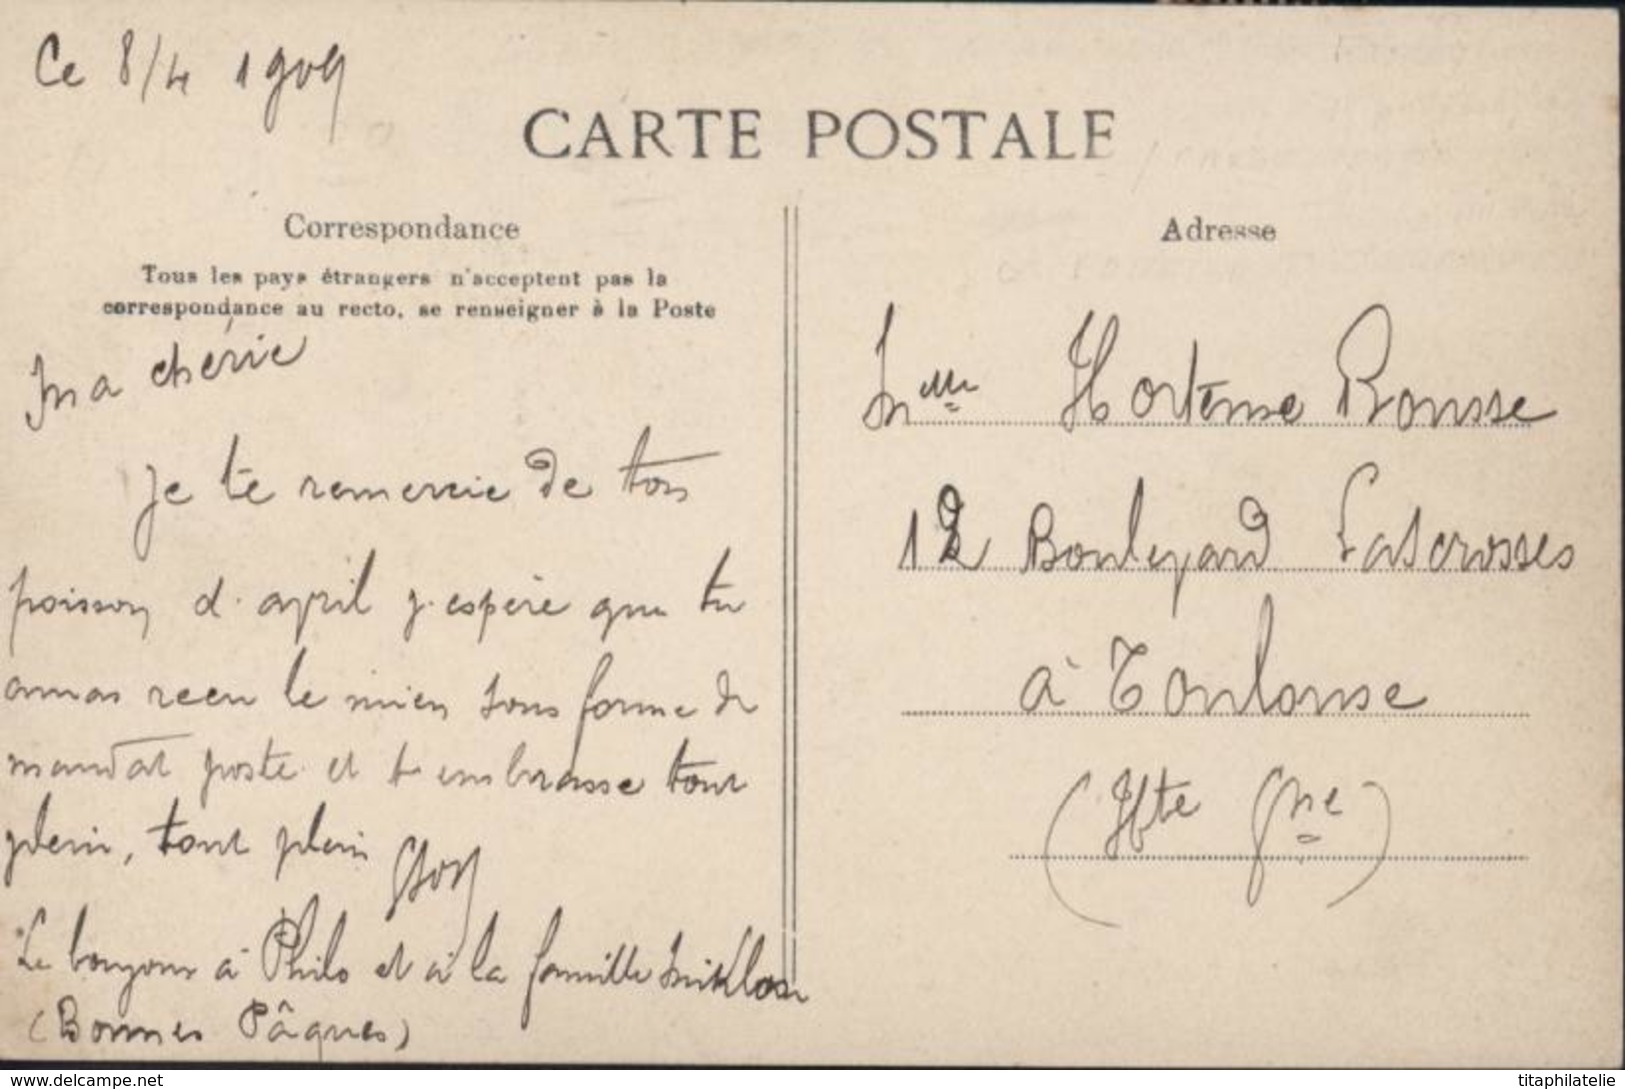 Ce 8/4 1909
CARTE POSTALE
Correspondance
Tous les pays étrangers n'acceptent pas la
correspondance au recto, se renseigner à la Poste
Ma chérie
je te remercie de ton
poisson d'avril j'espère que tu
auras reçu le mien sous forme de
mandat poste et t'embrasse tout
plein, tout plein
Le bonjour à Philo et à la famille
(Bonnes Pâques)
Adresse
Melle Hortense Rousse
12 Boulevard Lascrosses
à Toulouse
(Hte Gne)
www.delcampe.net
titaphilatelie